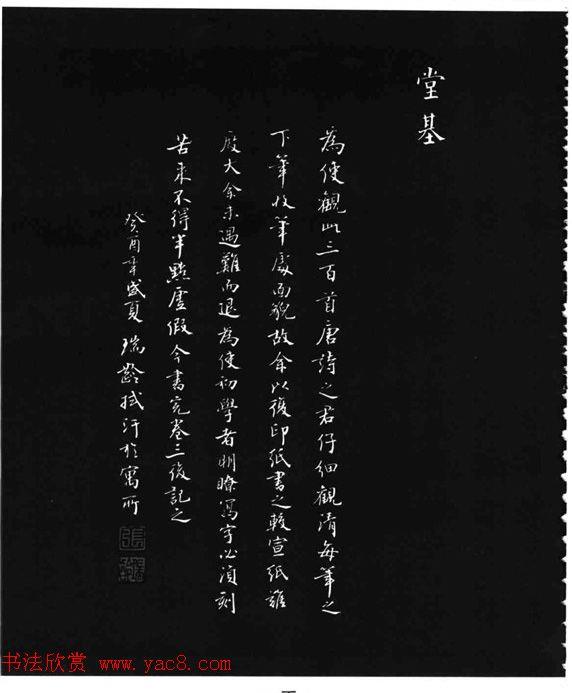 堂基
為使觀此三百首唐詩之君仔細觀清每筆之
下筆收筆處面貌故余以複印紙書之較宣紙難
度大余未遇難而退為使初學者明瞭寫字必須刻
苦來不得半點虛假今書完卷三後記之
癸酉年盛夏瑞齡拭汗於寓所
书法欣赏 www.yac8.com